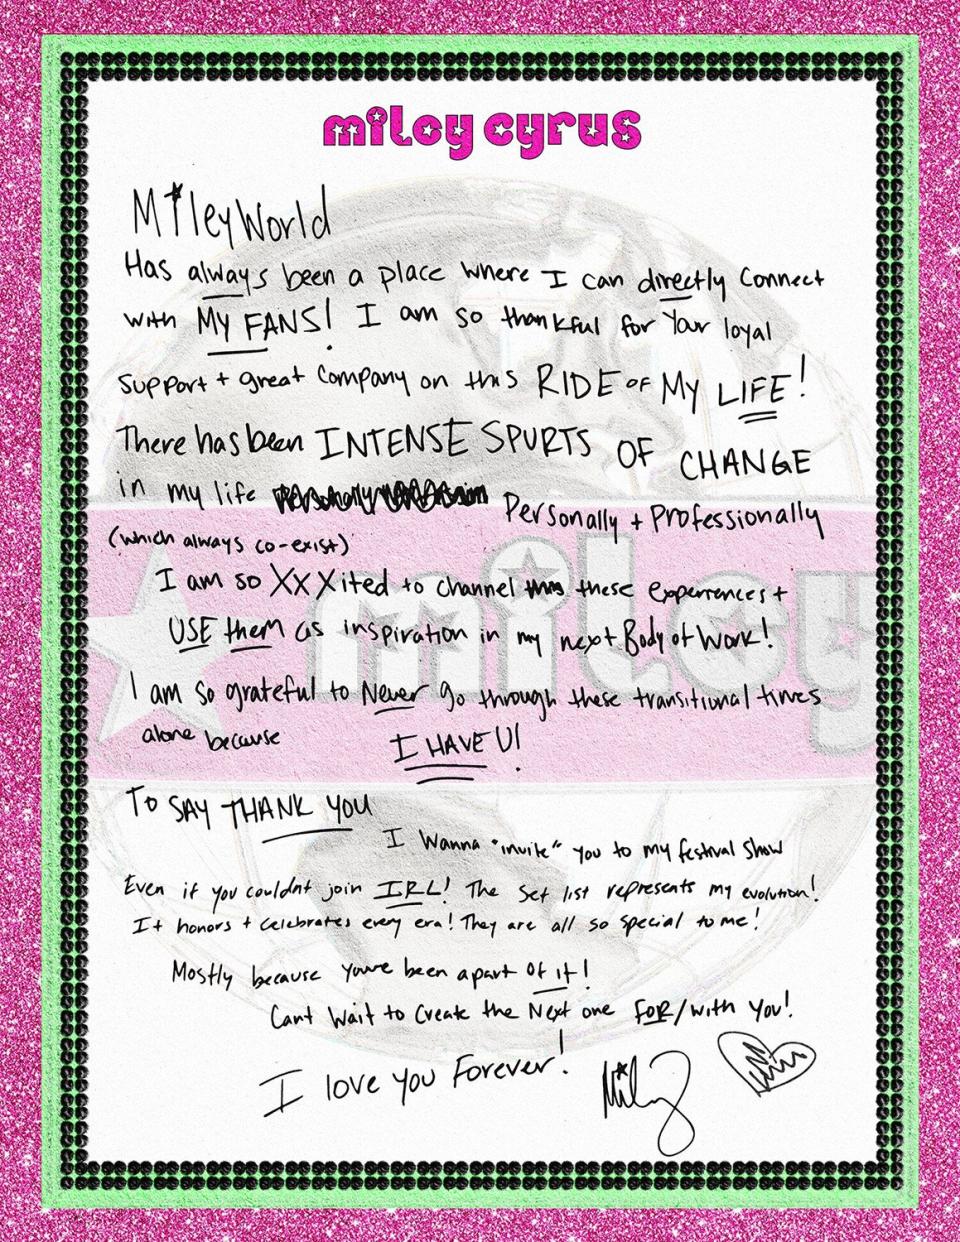 miley cyrus
MileyWorld
Has always been a place where I can directly connect
with MY FANS! I am so thankful for your loyal
support + great company on this RIDE OF MY LIFE!
There has been INTENSE SPURTS OF CHANGE
in my life Personally + Professionally
(which always co-exist)
I am so XXXited to channel this these experiences +
USE them as inspiration in my next Body of Work!
I am so grateful to Never go through these transitional times
alone because I HAVE U!
To SAY THANK YOU
I Wanna "invite" you to my festival show
Even if you couldnt join IRL! The set list represents my evolution!
It honors + celebrates every era! They are all so special to me!
Mostly because youve been apart of it!
Cant Wait to Create the Next one FOR/with You!
I love you Forever!
Miley
miley